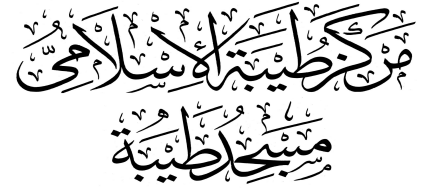 مركز طيبة الإسلامي
مسجد طيبة